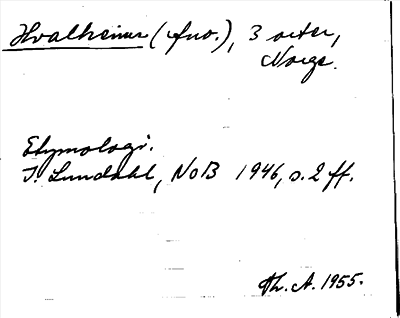 Hvalheimr (fno.), 3 orter,
Norge.
Etymologi.
I. Lundahl, NoB 1946, s. 2 ff.
Th. A. 1955.